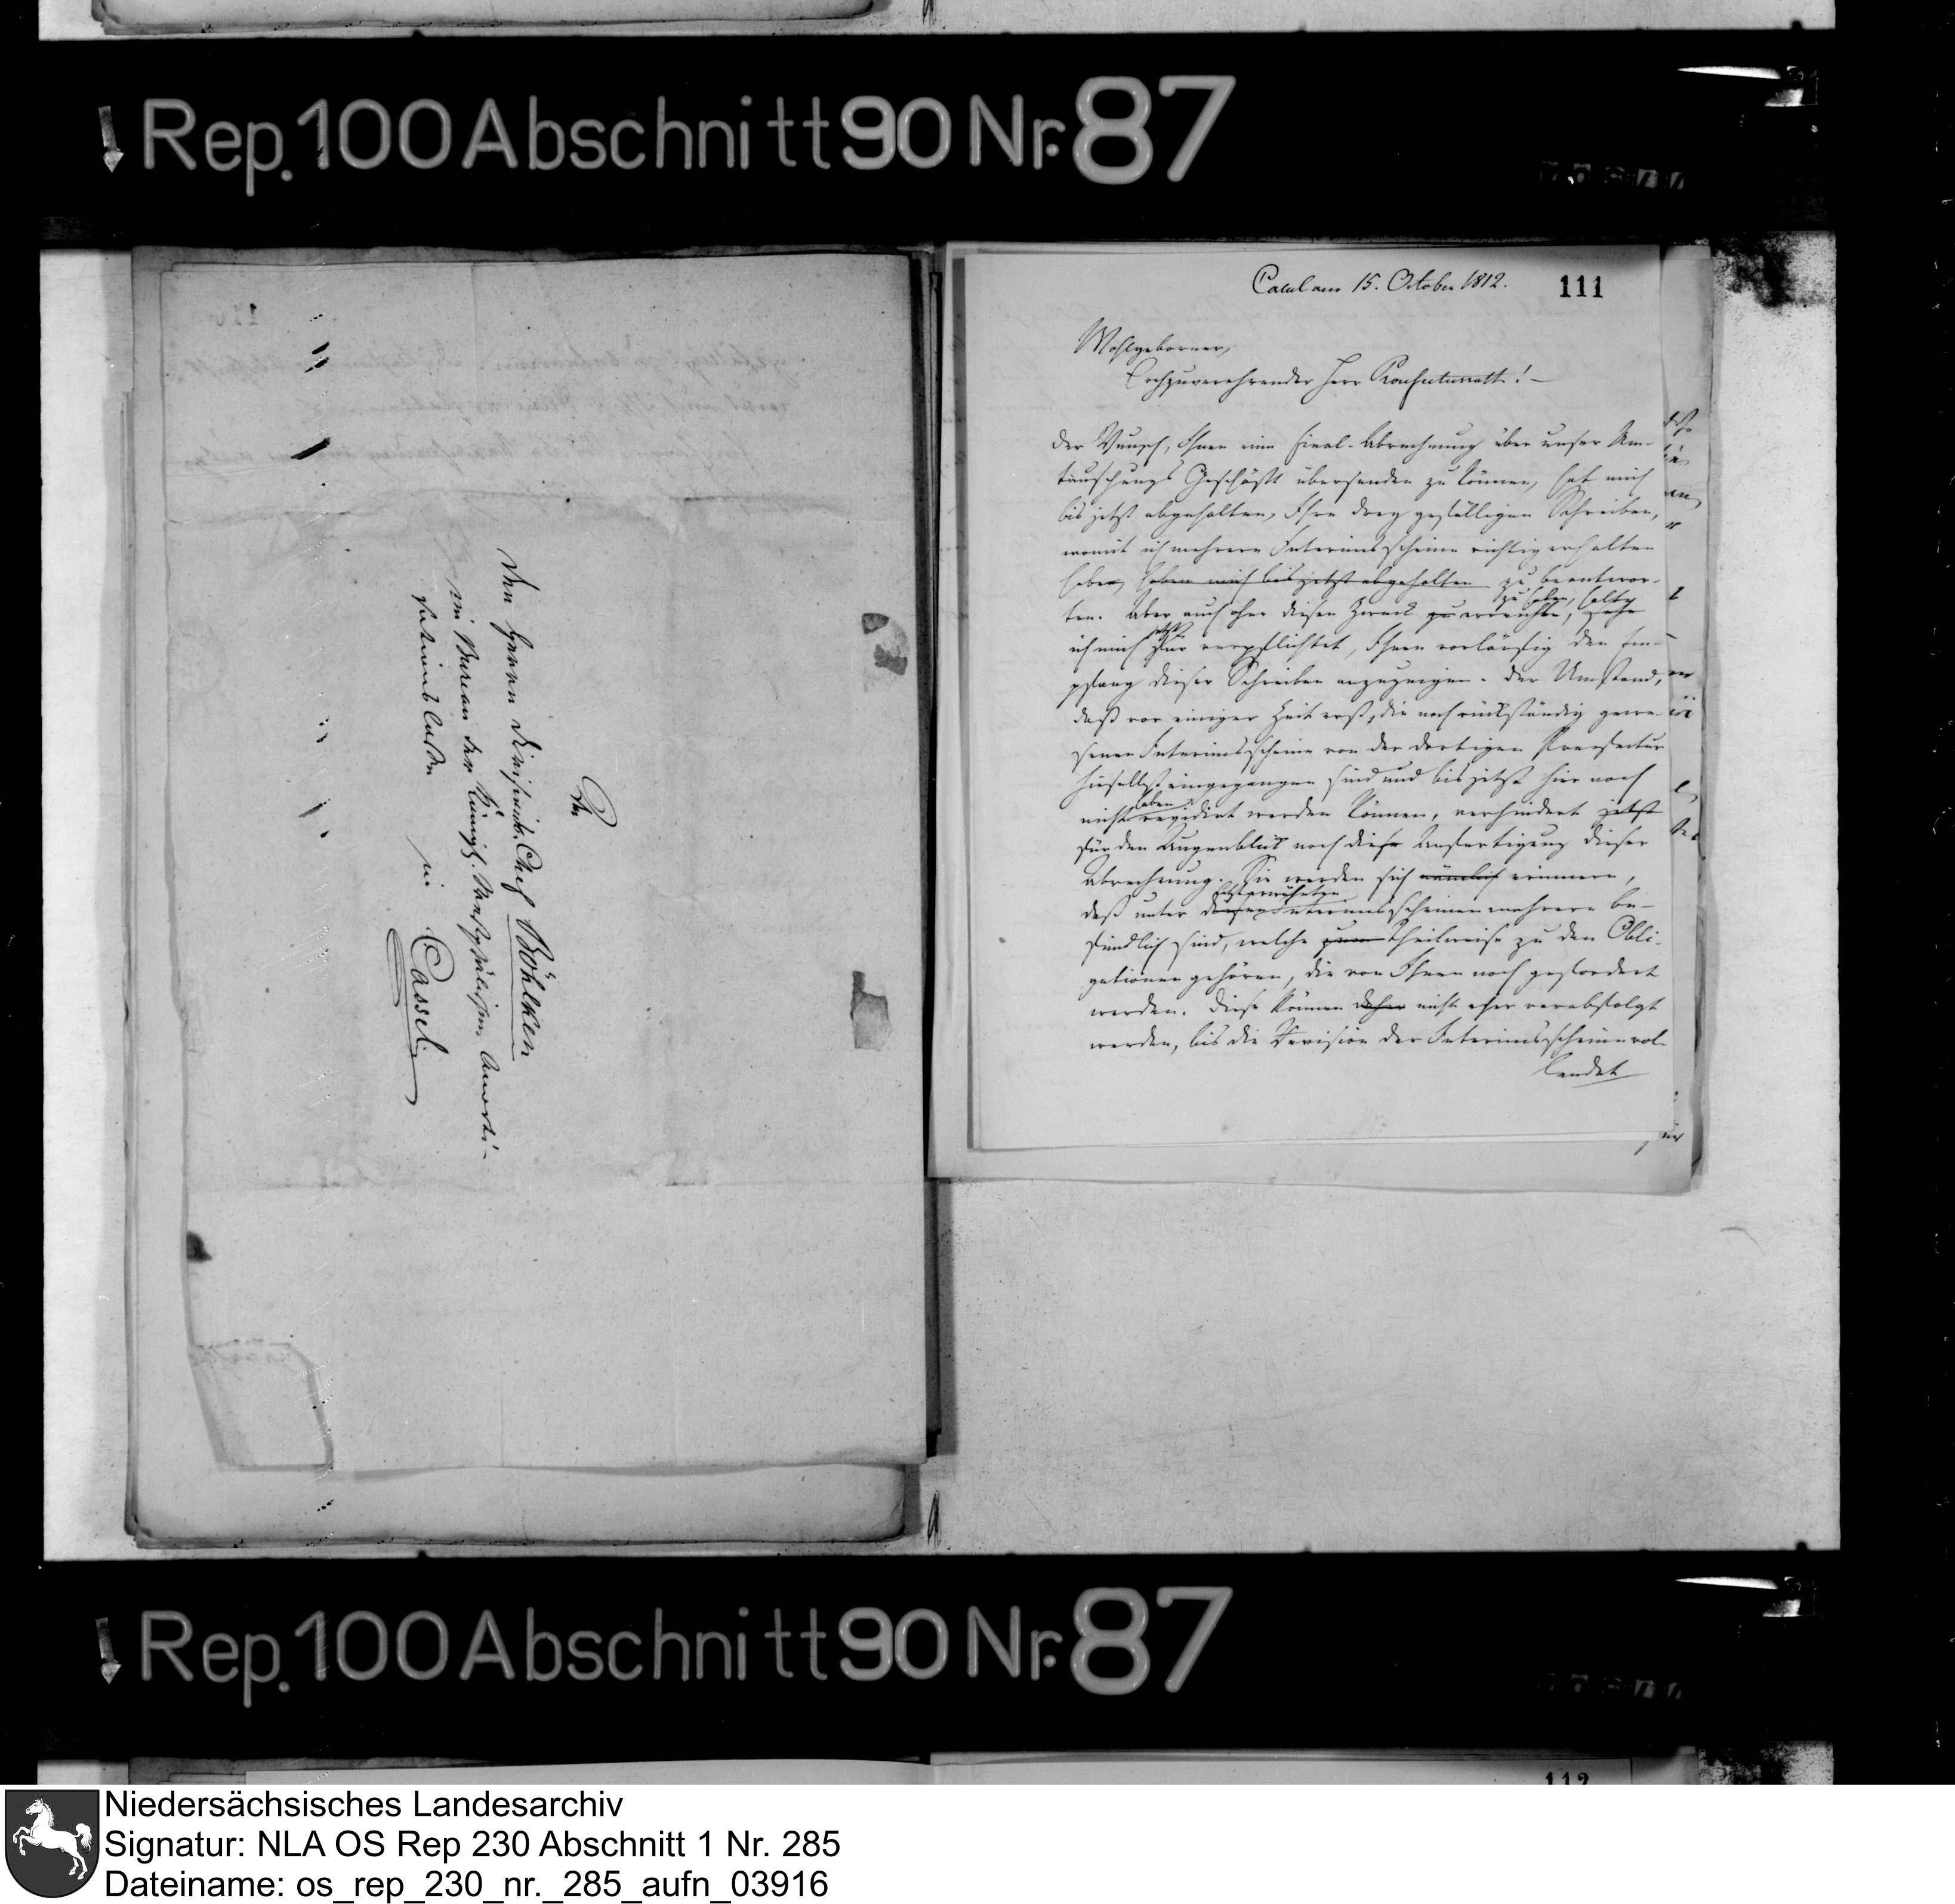 Rep. 100 Abschnitt 90 Nr. 87
An
den Herrn Divisions-Chef Böhlken
im Bureau der Königl. Westphälischen Amorti-
sations Casse
in Cassel.
Cassel am 15. October 1812.
111
Wohlgeborner,
Hochzuverehrender Herr !—
Der Wunsch, Ihnen eine Final-Abrechnung über unser Um-
tauschungs Geschäft übersenden zu können, hat mich
bis jetzt abgehalten, Ihre drey gefälligen Schreiben,
womit ich mehrere Interimsscheine richtig erhalten
habe, haben mich bis jetzt abgehalten zu beantwor-
ten. Aber auch ohne diesen Zweck zu erreichen, zu haben, halte
ich mich jetzt verpflichtet, Ihnen vorläufig den Em-
pfang dieser Schreiben anzuzeigen. Der Umstand,
daß vor einiger Zeit erst, die noch rückständig gewe-
senen Interimsscheine von der dortigen Praefectur
hieselbst eingegangen sind und bis jetzt hier noch
nicht haben revidirt werden können, verhindert jetzt
für den Augenblick noch die Anfertigung dieser
Abrechnung. Sie werden sich nämlich erinnern,
daß unter diesen letzterwähnten Interimsscheinen mehrere be-
findlich sind, welche zum theilweise zu den Obli-
gationen gehören, die von Ihnen noch gefordert
werden. Diese können daher nicht eher verabfolgt
werden, bis die Revision der Interimsscheine vol-
lendet
Rep. 100 Abschnitt 90 Nr. 87
112
Niedersächsisches Landesarchiv
Signatur: NLA OS Rep 230 Abschnitt 1 Nr. 285
Dateiname: os_rep_230_nr._285_aufn_03916